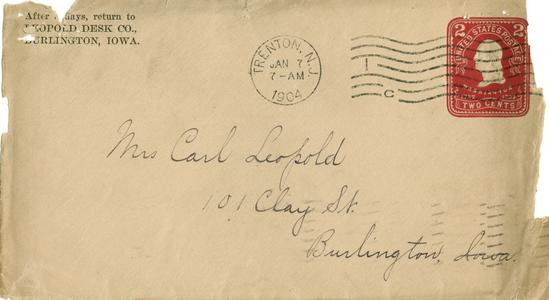 After days, return to
LEOPOLD DESK CO.,
BURLINGTON, IOWA.
TRENTON, N.J.
JAN 7
7-AM
1904
I
C
2 2
UNITED STATES POSTAGE
WASHINGTON
TWO CENTS
Mrs Carl Leopold
101 Clay St.
Burlington, Iowa.